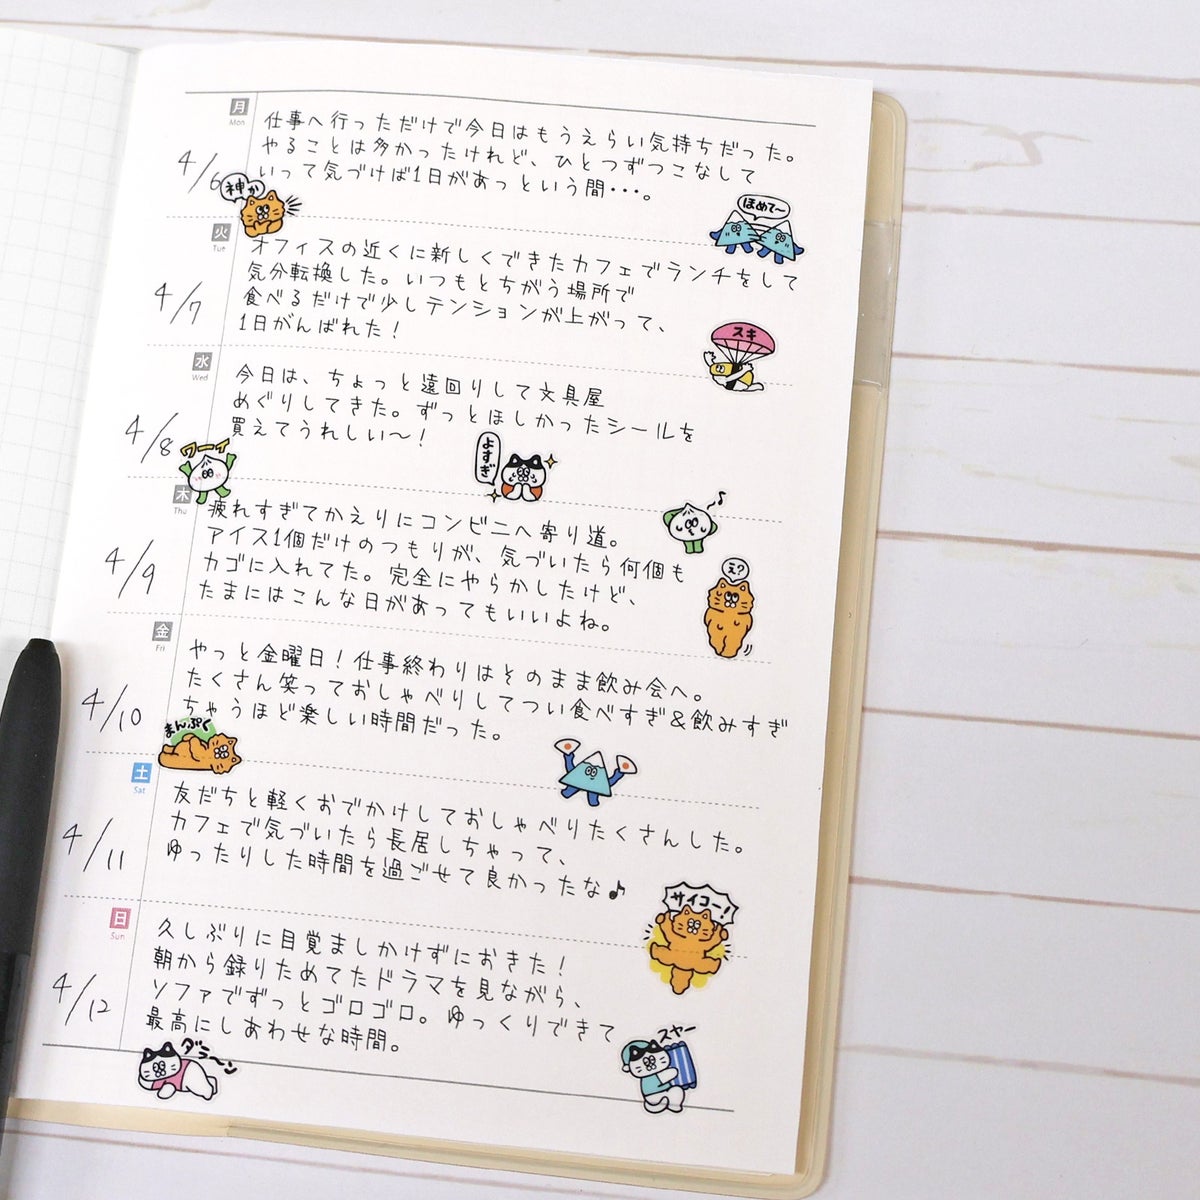 月
Mon
4/6
仕事へ行っただけで今日はもうえらい気持ちだった。
やることは多かったけれど、ひとつずつこなして
いって気づけば1日があっという間・・・。
神か
ほめて〜
火
Tue
4/7
オフィスの近くに新しくできたカフェでランチをして
気分転換した。いつもとちがう場所で
食べるだけで少しテンションが上がって、
1日がんばれた！
スキ
水
Wed
4/8
今日は、ちょっと遠回りして文具屋
めぐりしてきた。ずっとほしかったシールを
買えてうれしい〜！
ワーイ
よすぎ
木
Thu
4/9
疲れすぎてかえりにコンビニへ寄り道。
アイス1個だけのつもりが、気づいたら何個も
カゴに入れてた。完全にやらかしたけど、
たまにはこんな日があってもいいよね。
♪
え？
金
Fri
4/10
やっと金曜日！仕事終わりはそのまま飲み会へ。
たくさん笑っておしゃべりしてつい食べすぎ&飲みすぎ
ちゃうほど楽しい時間だった。
まんぷく
土
Sat
4/11
友だちと軽くおでかけしておしゃべりたくさんした。
カフェで気づいたら長居しちゃって、
ゆったりした時間を過ごせて良かったな♪
サイコー！
日
Sun
4/12
久しぶりに目覚ましかけずにおきた！
朝から録りためてたドラマを見ながら、
ソファでずっとゴロゴロ。ゆっくりできて
最高にしあわせな時間。
ダラ〜ン
スヤー